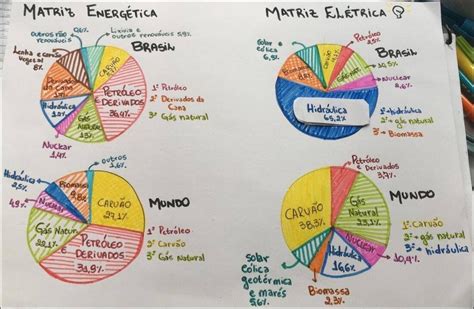 MATRIZ ENERGÉTICA
Outros não renováveis
0,6%
Lixívia e outros renováveis 5,9%
BRASIL
Lenha e carvão vegetal 8%
CARVÃO
Derivados da Cana
17%
Hidráulica
12%
Gás NATURAL
13%
Nuclear
1,4%
PETRÓLEO DERIVADOS
36,4%
1º Petróleo
2º Derivados da Cana
3º Gás natural
MATRIZ ELÉTRICA
Solar e eólica
6,9%
CARVÃO
4,1%
Petróleo
2,5%
BRASIL
10,5%
Nuclear
2,6%
Biomassa
8,2%
Hidráulica
65,2%
1º hidráulica
2º gás natural
3º Biomassa
Hidráulica
2,5%
Biomassa
9,8%
Outros
1,6%
4,9%
Nuclear
CARVÃO
27,1%
Gás Natural
22,1%
PETRÓLEO E DERIVADOS
31,9%
MUNDO
1º Petróleo
2º Carvão
3º Gás Natural
Petróleo e Derivados
3,7%
CARVÃO
38,3%
Gás Natural
23,1%
Nuclear
10,4%
Hidráulica
16,6%
Biomassa
2,3%
solar
eólica
geotérmica
e marés
5,6%
MUNDO
1. Carvão
2º gás natural
3º hidráulica